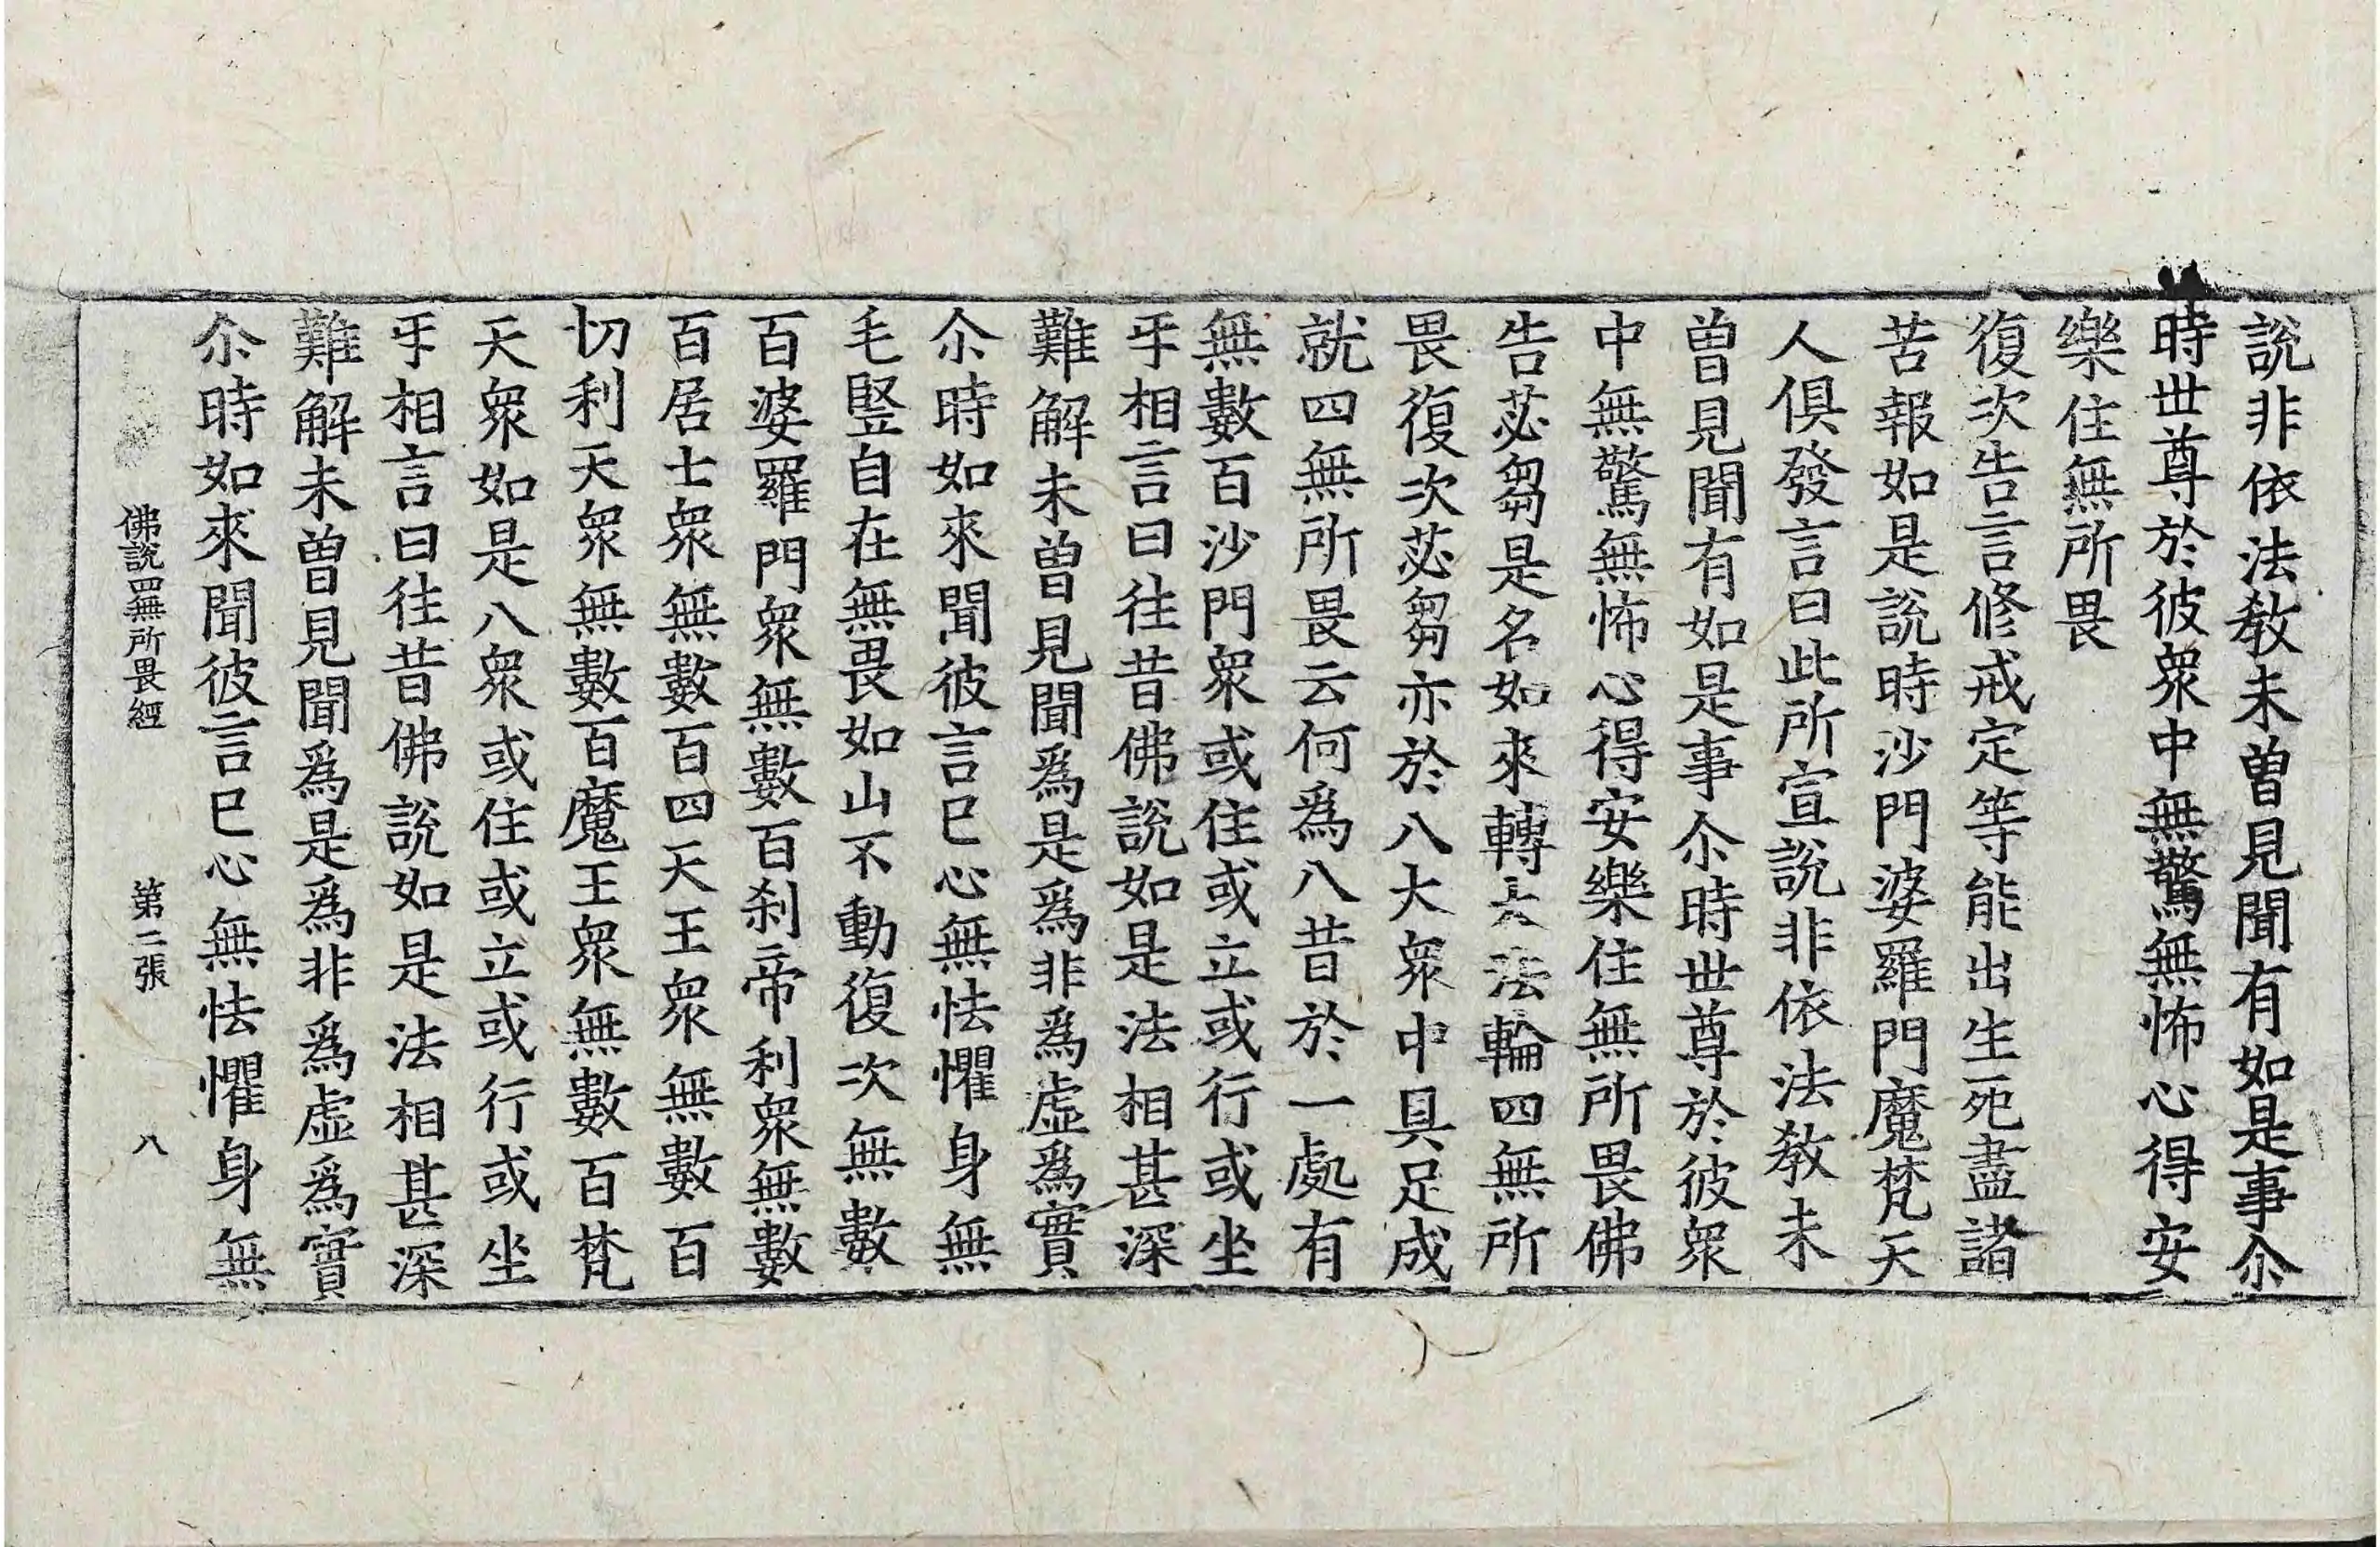 說非依法教未曽見聞有如是事尒
時世尊於彼衆中無驚無怖心得安
樂住無所畏
復次告言修戒定等能出生死盡諸
苦報如是說時沙門婆羅門魔梵天
人俱發言曰此所宣說非依法教未
曽見聞有如是事尒時世尊於彼衆
中無驚無怖心得安樂住無所畏佛
告苾芻是名如來轉大法輪四無所
畏復次苾芻亦於八大衆中具足成
就四無所畏云何爲八昔於一處有
無數百沙門衆或住或立或行或坐
乎相言曰往昔佛說如是法相甚深
難解未曽見聞爲是爲非爲虛爲實
尒時如來聞彼言已心無怯懼身無
毛竪自在無畏如山不動復次無數
百婆羅門衆無數百刹帝利衆無數
百居士衆無數百四天王衆無數百
忉利天衆無數百魔王衆無數百梵
天衆如是八衆或住或立或行或坐
乎相言曰往昔佛說如是法相甚深
難解未曽見聞爲是爲非爲虛爲實
尒時如來聞彼言已心無怯懼身無
佛說四無所畏經 第二張 八